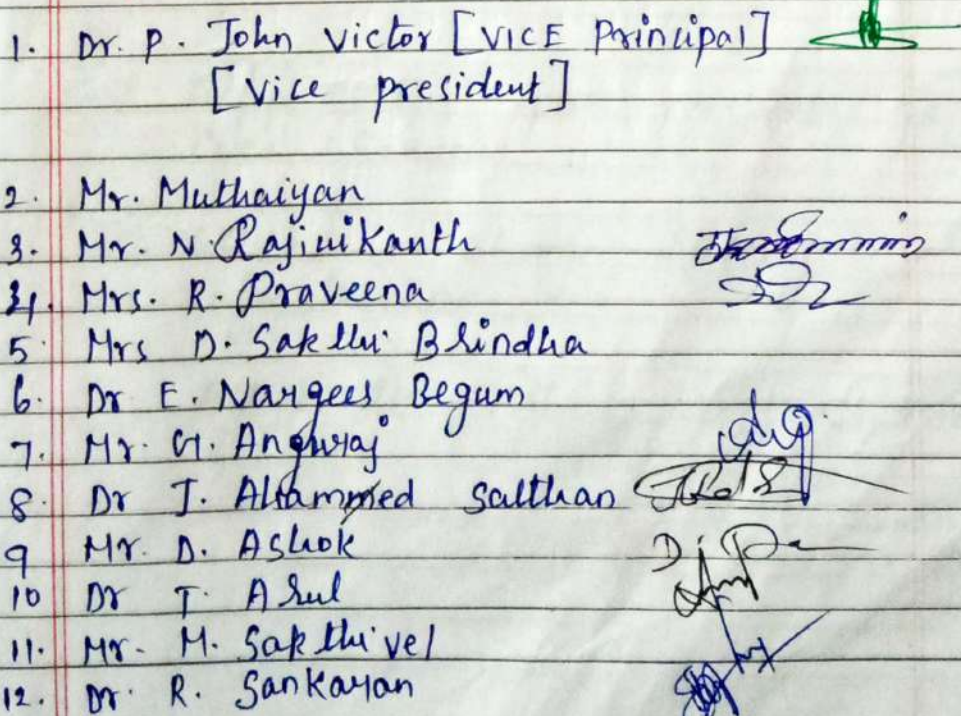 1. Dr. P. John Victor [VICE Principal]
[Vice president]
2. Mr. Muthaiyan
3. Mr. N. Rajinikanth
4. Mrs. R. Praveena
5. Mrs D. Sakthi Brindha
6. Dr E. Nargees Begum
7. Mr. G. Anguraj
8. Dr J. Ahammed Salthan
9 Mr. D. Ashok
10 Dr T. Arul
11. Mr. M. Sakthivel
12. Dr. R. Sankaran